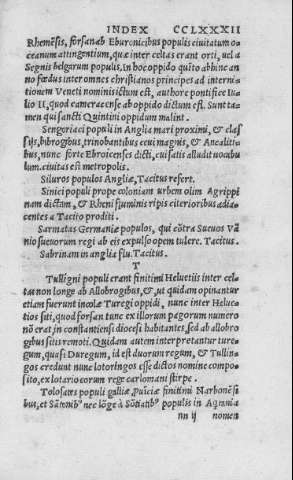 INDEX CCLXXXII
Rhemēsis, forsan ab Eburonicibus populis ciuitatum o-
ceanum attingentium, quæ inter celtas erant orti, uel a
Segnis belgarum populis. In hoc oppido quīto abhinc an
no fœdus inter omnes christianos principes ad interni-
tionem Veneti nominis ictum est, authore pontifice Iu-
lio II, quod cameracense ab oppido dictum est. Sunt ta-
men qui sancti Quintini oppidum malint.
Sengoriaci populi in Anglia mari proximi, &clas
sijs, bibrogibus, trinobantibus ceui magnis, & Ancaliti-
bus, nunc forte Ebroicenses dicti, cuifatis alludit uocabu
lum. ciuitas est metropolis.
Siluros populos Angliæ, Tacitus refert.
Sinici populi prope coloniam urbem olim Agrippi
nam dictam, & Rheni fluminis ripis citerioribus adia-
centes a Tacito proditi.
Sarmatas Germaniæ populos, qui cōtra Sueuos Vā
nio sueuorum regi ab eis expulso opem tulere. Tacitus.
Sabrinam in anglia flu. Tacitus.
T
Tulligni populi erant finitimi Heluetijs inter cel-
tas non longe ab Allobrogibus, &, ut quidam opinantur
etiam fuerunt incolæ Turegi oppidi, nunc inter Heluc-
tios siti, quod forsan tunc ex illorum pagorum numero
nō erat in constantiensi diocesi habitantes, sed ab allobro
gibus sitis remoti. Quidam autem interpretantur ture-
gum, quasi Duregum, id est duorum regum, & Tullin-
gos credunt nunc lotoringos esse dictos nomine compo-
sito, ex lotario eorum rege carlomani stirpe.
Tolosates populi galliæ, Puīciæ finitimi Narbonēsi
bus, et Sātonib⁹ nec lōge à Sōtiatib⁹ populis in Aqtnnia
nn ij nomen